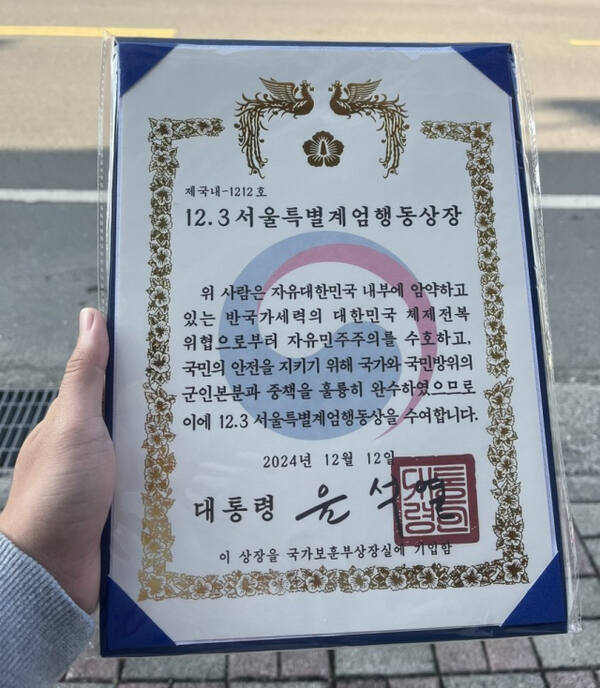 제국내-1212호
12.3 서울특별계엄행동상장
위 사람은 자유대한민국 내부에 암약하고
있는 반국가세력의 대한민국 체제전복
위협으로부터 자유민주주의를 수호하고,
국민의 안전을 지키기 위해 국가와 국민방위의
군인본분과 중책을 훌륭히 완수하였으므로
이에 12.3 서울특별계엄행동상을 수여합니다.
2024년 12월 12일
대통령 윤석열
대통령
이 상장을 국가보훈부상장실에 기입함